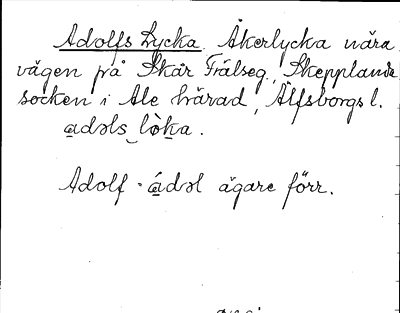 Adolfs Lycka. Åkerlycka nära
vägen på Skår Frälseg., Skepplanda
socken i Ale härad, Älfsborgs l.
adəls lòka.
Adolf - ádəl ägare förr.